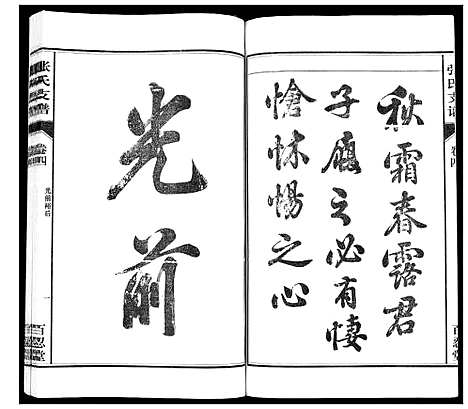 张氏支谱
卷四
百忍堂
秋霜春露君
子履之必有悽
愴怵惕之心
光前
张氏支谱
卷四
光前裕后
一
百忍堂